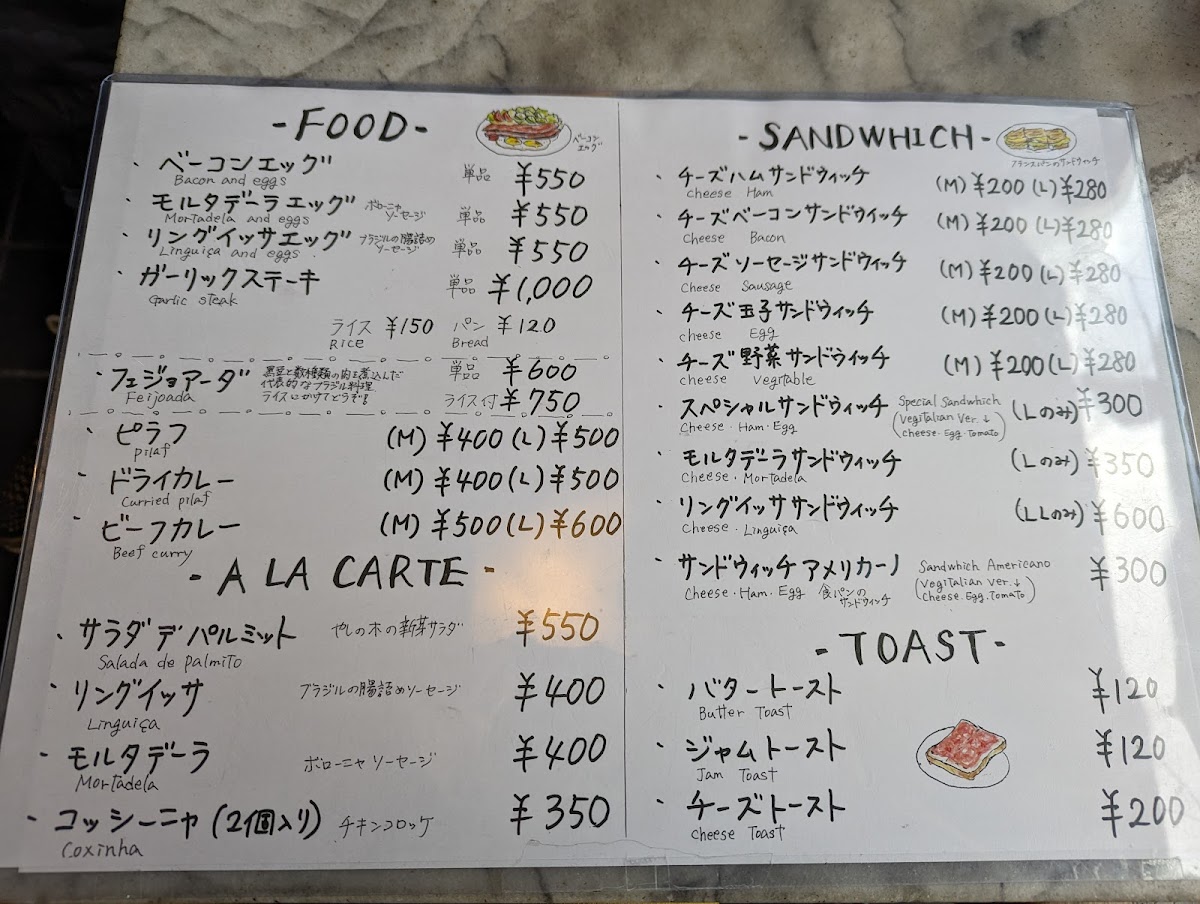 -FOOD-
ベーコンエッグ
・ベーコンエッグ 単品 ¥550
Bacon and eggs
・モルタデーラエッグ ボローニャソーセージ 単品 ¥550
Mortadela and eggs
・リングイッサエッグ ブラジルの腸詰めソーセージ 単品 ¥550
Linguiça and eggs
・ガーリックステーキ 単品 ¥1,000
Garlic steak
ライス ¥150 パン ¥120
Rice Bread
・フェジョアーダ 単品 ¥600
Feijoada
黒豆と数種類の肉を煮込んだ
代表的なブラジル料理
ライスにかけてどうぞ!
ライス付 ¥750
・ピラフ (M) ¥400 (L) ¥500
pilaf
・ドライカレー (M) ¥400 (L) ¥500
Curried pilaf
・ビーフカレー (M) ¥500 (L) ¥600
Beef curry
- A LA CARTE -
・サラダ デ パルミット やしの木の新芽サラダ ¥550
Salada de palmito
・リングイッサ ブラジルの腸詰めソーセージ ¥400
Linguiça
・モルタデーラ ボローニャソーセージ ¥400
Mortadela
・コッシーニャ (2個入り) チキンコロッケ ¥350
Coxinha
- SANDWHICH -
フランスパンのサンドウィッチ
・チーズハムサンドウィッチ (M) ¥200 (L) ¥280
cheese Ham
・チーズベーコンサンドウィッチ (M) ¥200 (L) ¥280
Cheese Bacon
・チーズソーセージサンドウィッチ (M) ¥200 (L) ¥280
Cheese Sausage
・チーズ玉子サンドウィッチ (M) ¥200 (L) ¥280
cheese Egg
・チーズ野菜サンドウィッチ (M) ¥200 (L) ¥280
cheese Vegitable
・スペシャルサンドウィッチ Special Sandwhich (Lのみ) ¥300
Cheese・Ham・Egg (Vegitalian Ver.↓
cheese・Egg・Tomato)
・モルタデーラサンドウィッチ (Lのみ) ¥350
Cheese・Mortadela
・リングイッササンドウィッチ (LLのみ) ¥600
Cheese・Linguiça
・サンドウィッチアメリカーノ Sandwhich Americano ¥300
Cheese・Ham・Egg 食パンのサンドウィッチ (Vegitalian Ver.↓
Cheese.Egg.Tomato)
- TOAST -
・バタートースト ¥120
Butter Toast
・ジャムトースト ¥120
Jam Toast
・チーズトースト ¥200
cheese Toast